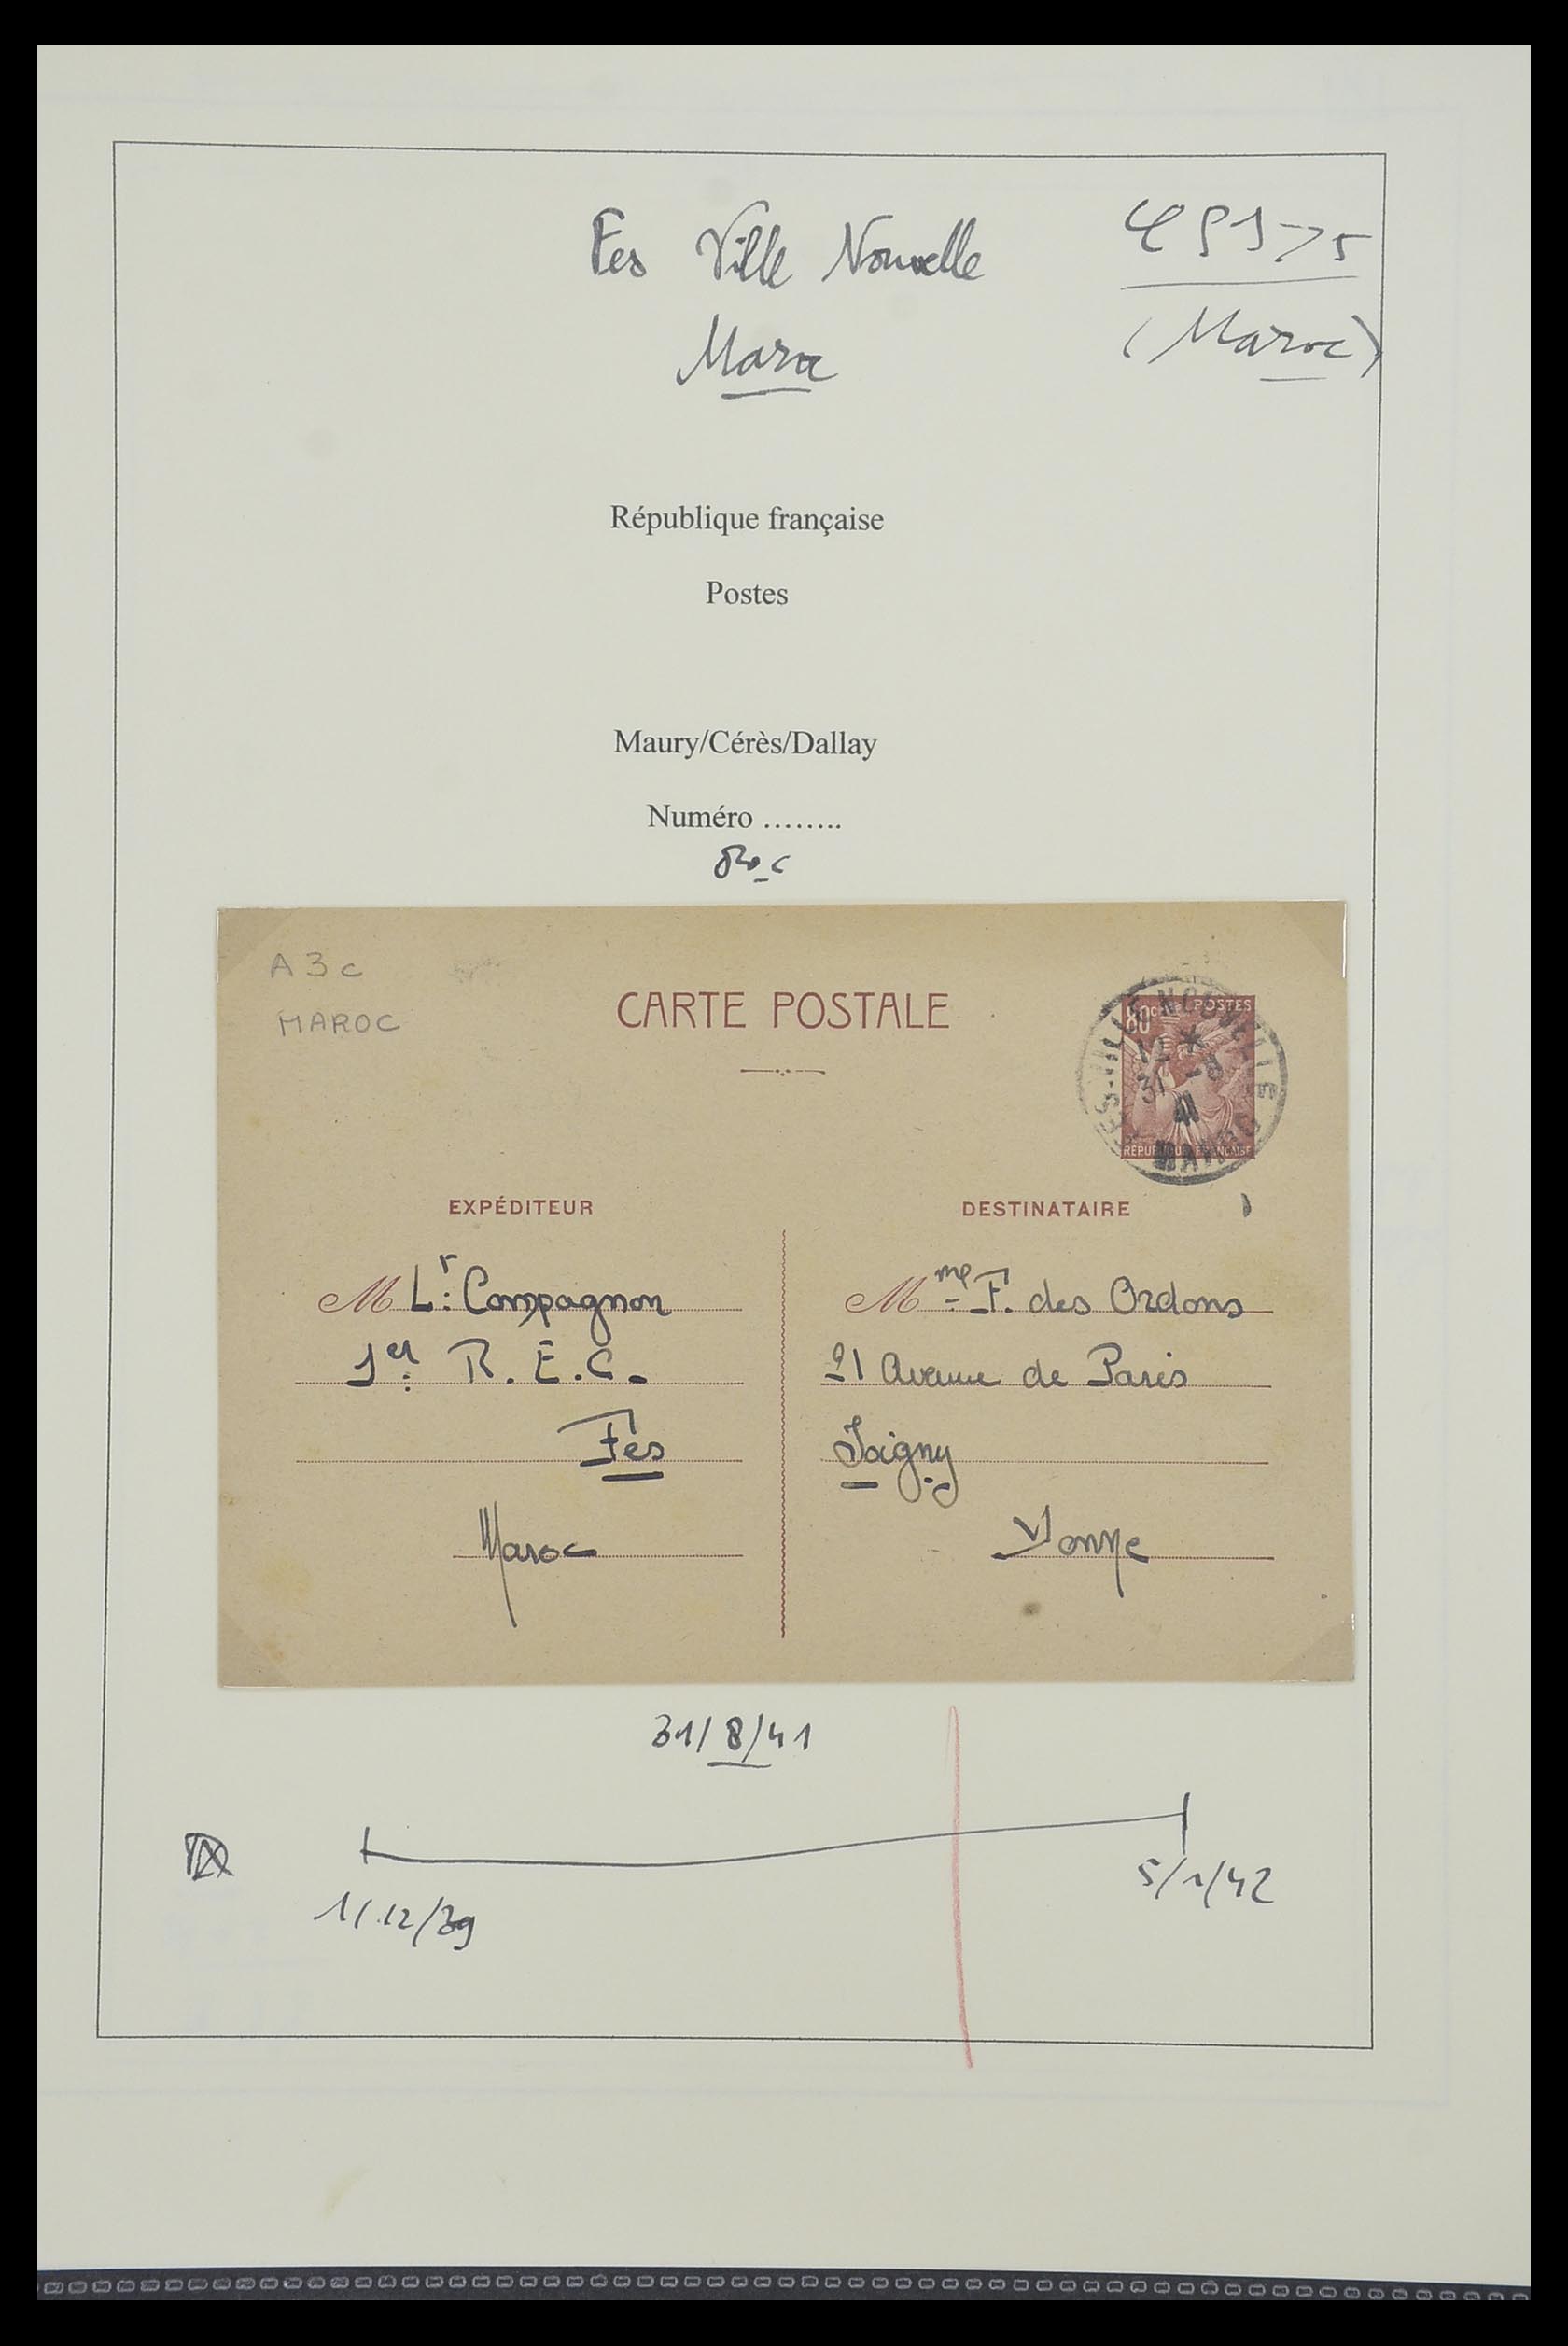 Fes Ville Nouvelle
Maroc
(Maroc)
République française
Postes
Maury/Cérès/Dallay
Numéro ........
A3c
MAROC
CARTE POSTALE
80c POSTES
RÉPUBLIQUE FRANÇAISE
FES-VILLE NOUVELLE
12 *
31 -8
41
MAROC
EXPÉDITEUR
M Lr: Compagnon
1er R. E. C.
Fès
Maroc
DESTINATAIRE
Mme F. des Ordons
21 Avenue de Paris
Joigny
Yonne
31/8/41
1/12/39
5/1/42